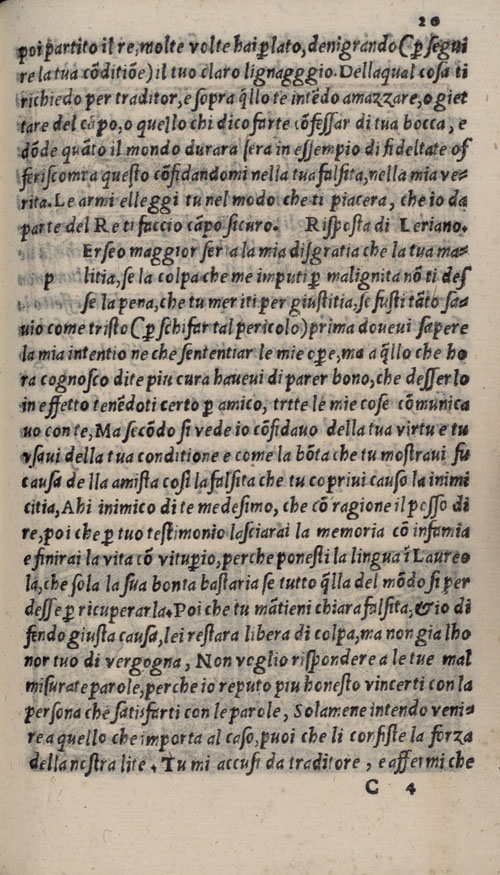 20
poi partito il re, molte volte hai ꝑlato, denigrando (ꝑ segui
re la tua cõditiõe) il tuo claro lignagggio. Della qual cosa ti
richiedo per traditor, e sopra q̃llo te intẽdo amazzare, o giet
tare del cãpo, o quello chi dico farte cõfessar di tua bocca, e
dõde quãto il mondo durara sera in essempio di fideltate of
feriscomra questo cõfidandomi nella tua falsita, nella mia ve-
rita. Le armi elleggi tu nel modo che ti piacera, che io da
parte del Re ti faccio cãpo sicuro. Risposta di Leriano.
p Erseo maggior fer a la mia disgratia che la tua ma-
litia, se la colpa che me imputi ꝑ malignita nõ ti des
se la pena, che tu meriti per giustitia, se fusti tãto sa-
uio come tristo (ꝑ schifar tal pericolo) prima doueui sapere
la mia intentio ne che sententiar le mie oꝑe, ma a q̃llo che ho
ra cognosco di te piu cura haueui di parer bono, che desserlo
in effetto tenẽdoti certo ꝑ amico, trtte le mie cose cõmunica
uo con te, Ma secõdo si vede io cõfidauo della tua virtu e tu
vsaui della tua conditione e come la bõta che tu mostraui fu
causa de lla amista cosi la falsita che tu copriui causo la inimi
citia, Ahi inimico di te medesimo, che cõ ragione il posso di
re, poi che ꝑ tuo testimonio lasciarai la memoria cõ infamia
e finirai la vita cõ vituꝑio, perche ponesti la lingua ĩ Laureo
la, che sola la sua bonta bastaria se tutto q̃lla del mõdo si per
desse ꝑ ricuperarla. Poi che tu mãtieni chiara falsita, & io di
fendo giusta causa, lei restara libera di colpa, ma non gia lho
nor tuo di vergogna, Non voglio rispondere a le tue mal
misurate parole, perche io reputo piu honesto vincerti con la
persona che satisfarti con le parole, Solamene intendo veni-
re a quello che importa al caso, puoi che li consiste la forza
della nostra lite. Tu mi accusi da traditore, e affermi che
C 4